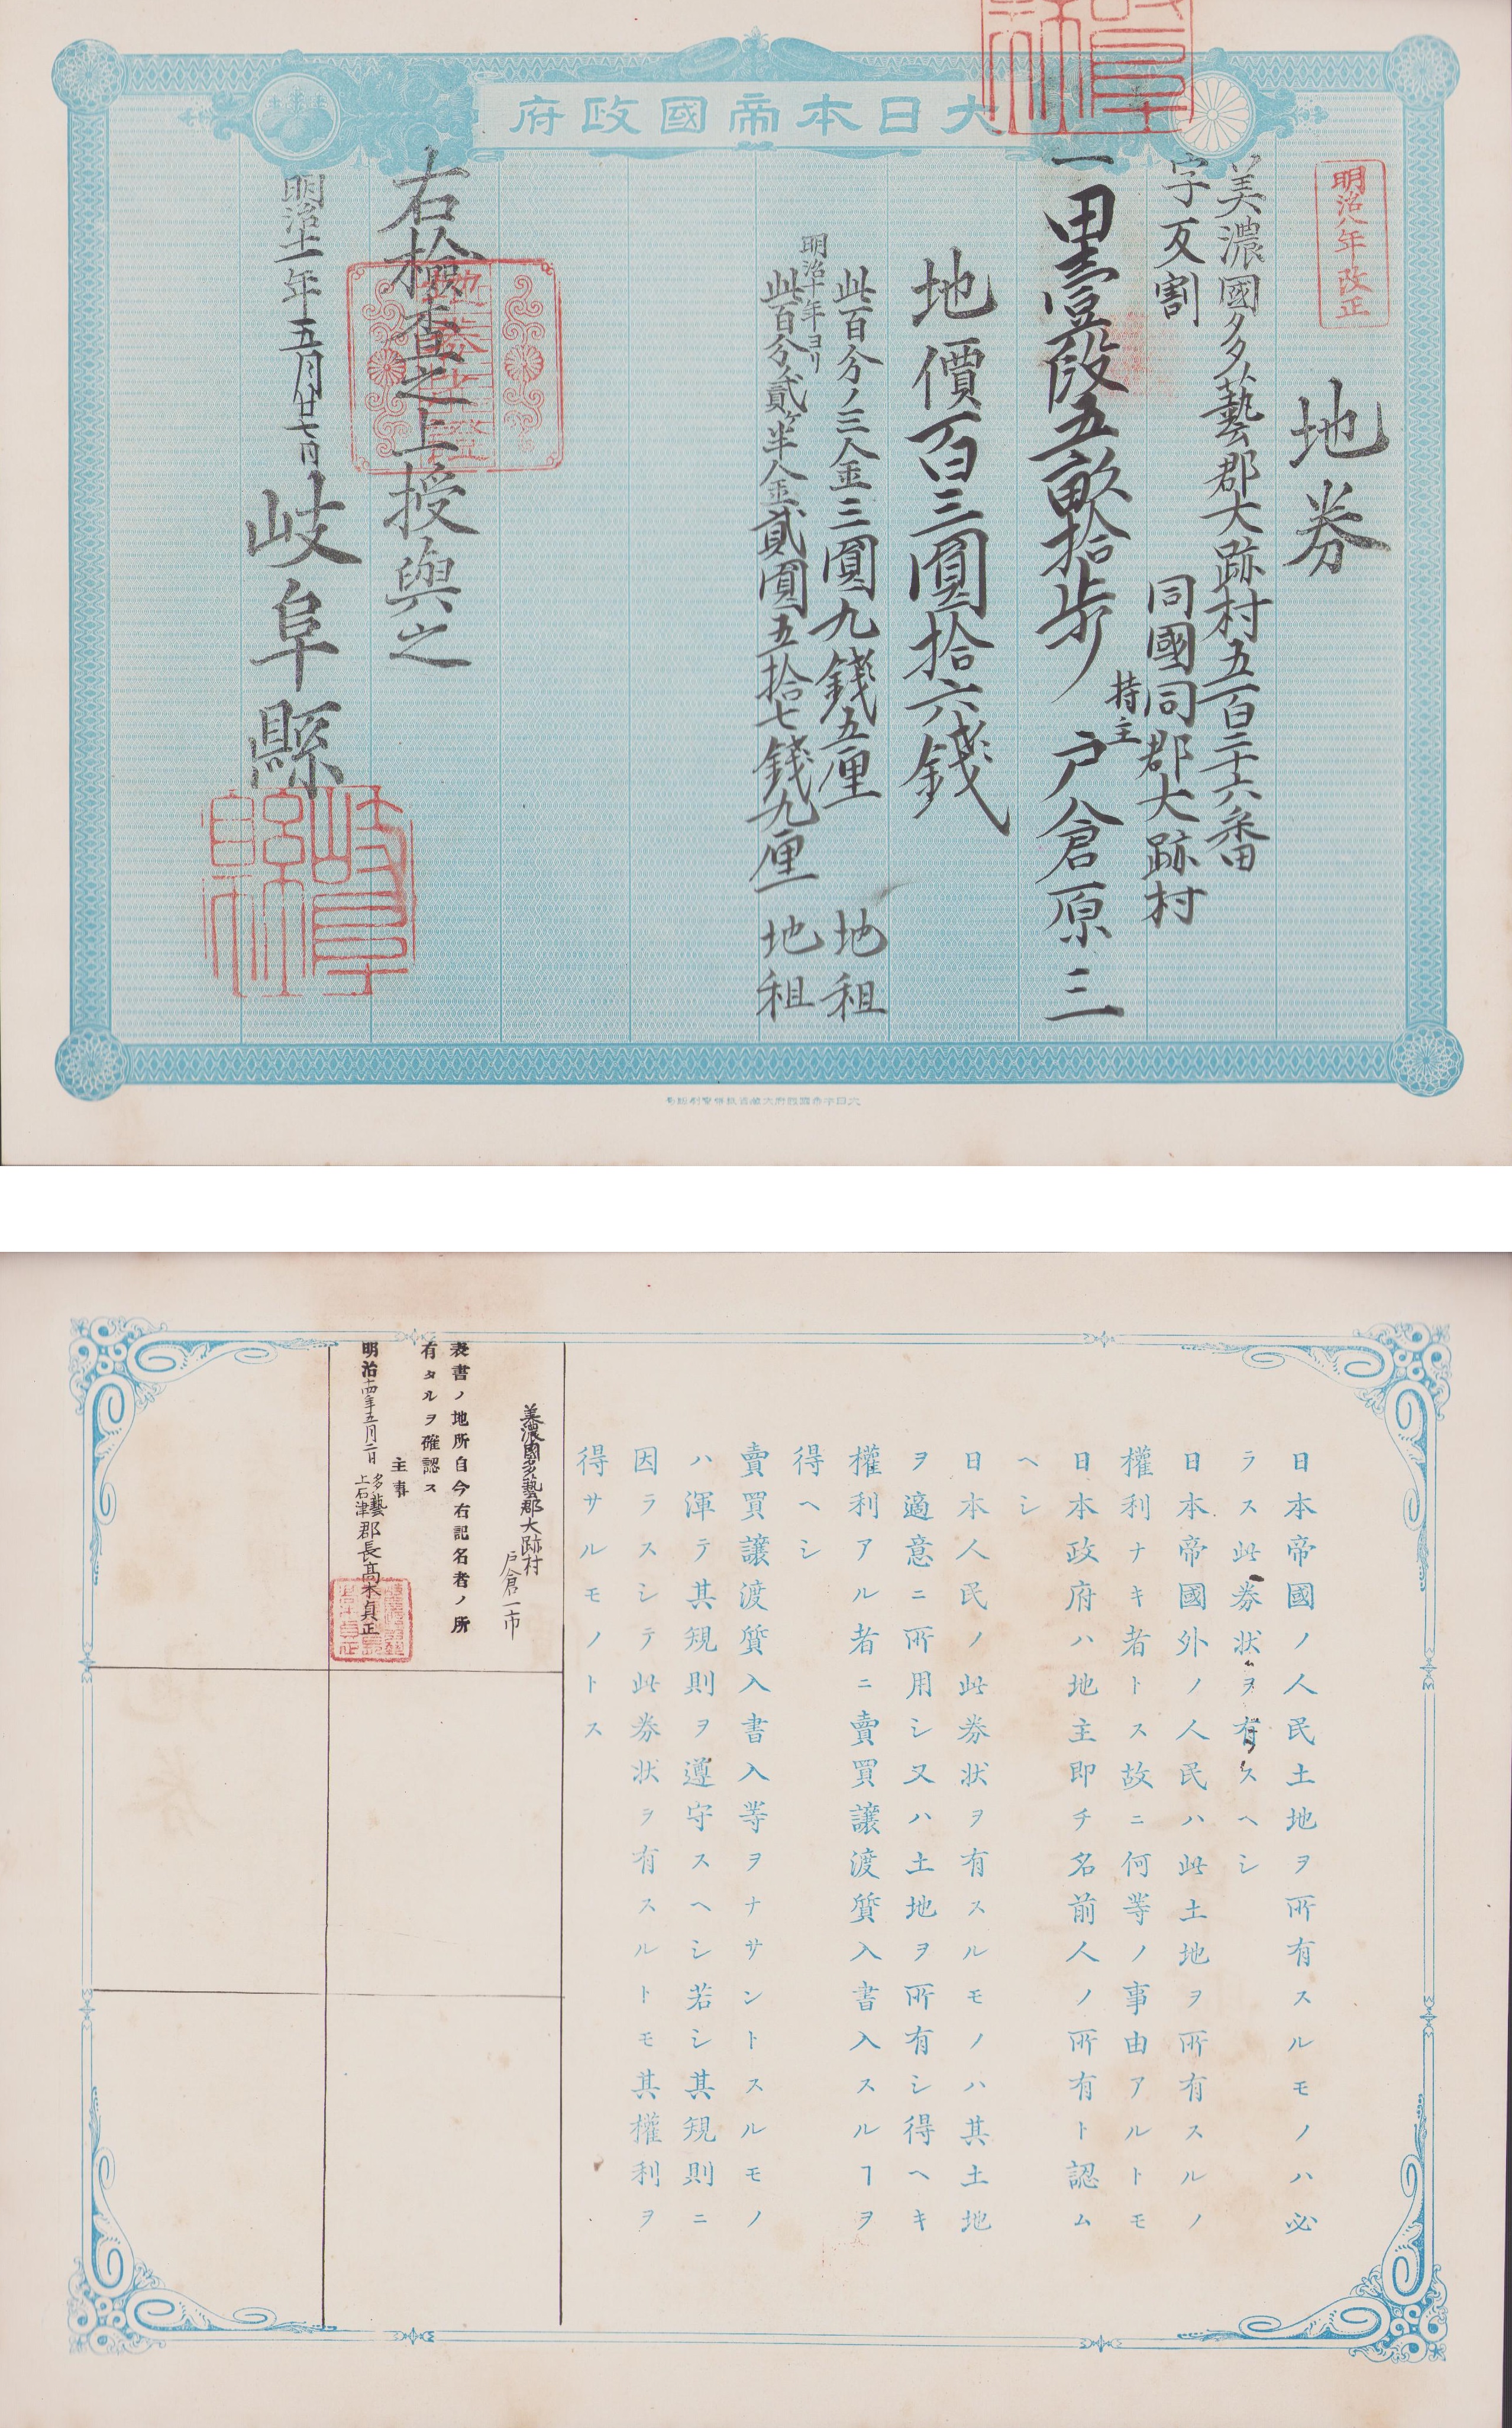 大日本帝國政府
明治八年改正
地券
美濃國多藝郡大跡村五百二十六番
字反割
同國同郡大跡村
一田壹段五畝拾歩
持主
戸倉原三
地價百三圓拾六錢
此百分ノ三金三圓九錢五厘 地租
明治十年ヨリ
此百分ノ貳ケ半金貳圓五拾七錢九厘 地租
右檢查之上授與之
明治十一年五月廿七日
岐阜縣
日本帝國ノ人民土地ヲ所有スルモノハ必
ラス此券状ヲ有スヘシ
日本帝國外ノ人民ハ此土地ヲ所有スルノ
權利ナキ者トス故ニ何等ノ事由アルトモ
日本政府ハ地主即チ名前人ノ所有ト認ム
ヘシ
日本人民ノ此券状ヲ有スルモノハ其土地
ヲ適意ニ所用シ又ハ土地ヲ所有シ得ヘキ
權利アル者ニ賣買讓渡質入書入スルヿヲ
得ヘシ
賣買讓渡質入書入等ヲナサントスルモノ
ハ渾テ其規則ヲ遵守スヘシ若シ其規則ニ
因ラスシテ此券状ヲ有スルトモ其權利ヲ
得サルモノトス
美濃國多藝郡大跡村
戸倉一市
表書ノ地所自今右記名者ノ所
有タルヲ確認ス
主事
明治十四年五月二日
多藝
上石津
郡長高木貞正